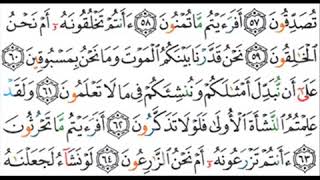 تُصَدِّقُونَ ﴿٥٧﴾ أَفَرَءَيْتُم مَّا تُمْنُونَ ﴿٥٨﴾ ءَأَنتُمْ تَخْلُقُونَهُۥٓ أَمْ نَحْنُ
ٱلْخَٰلِقُونَ ﴿٥٩﴾ نَحْنُ قَدَّرْنَا بَيْنَكُمُ ٱلْمَوْتَ وَمَا نَحْنُ بِمَسْبُوقِينَ ﴿٦٠﴾
عَلَىٰٓ أَن نُّبَدِّلَ أَمْثَٰلَكُمْ وَنُنشِئَكُمْ فِى مَا لَا تَعْلَمُونَ ﴿٦١﴾ وَلَقَدْ
عَلِمْتُمُ ٱلنَّشْأَةَ ٱلْأُولَىٰ فَلَوْلَا تَذَكَّرُونَ ﴿٦٢﴾ أَفَرَءَيْتُم مَّا تَحْرُثُونَ
﴿٦٣﴾ ءَأَنتُمْ تَزْرَعُونَهُۥٓ أَمْ نَحْنُ ٱلزَّٰرِعُونَ ﴿٦٤﴾ لَوْ نَشَآءُ لَجَعَلْنَٰهُ